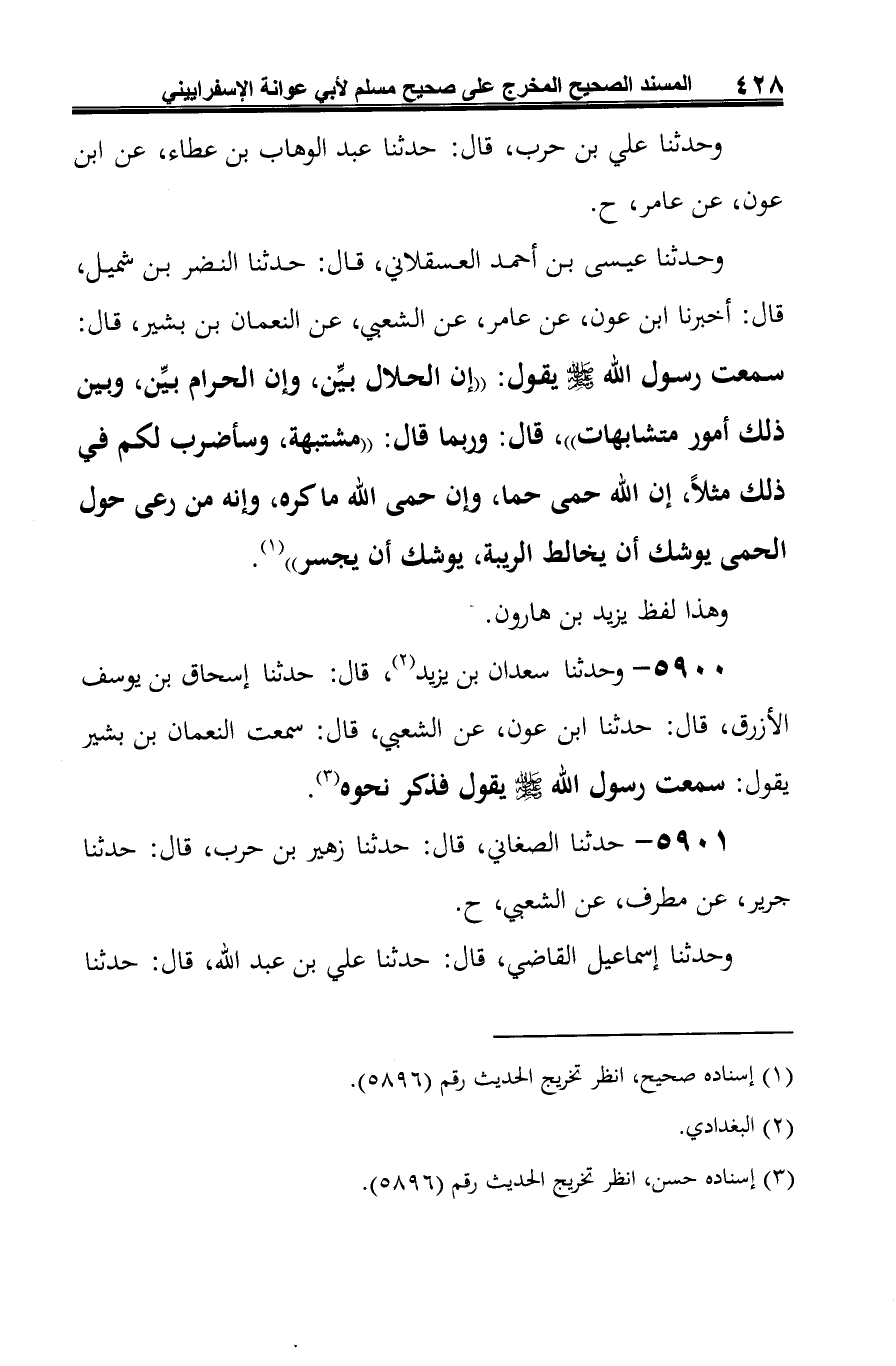 ٤٢٨ المسند الصحيح المخرج على صحيح مسلم لأبي عوانة الإسفراييني
وحدثنا علي بن حرب، قال: حدثنا عبد الوهاب بن عطاء، عن ابن
عون، عن عامر، ح.
وحدثنا عيسى بن أحمد العسقلاني، قال: حدثنا النضر بن شميل،
قال: أخبرنا ابن عون، عن عامر، عن الشعبي، عن النعمان بن بشير، قال:
سمعت رسول الله ﷺ يقول: ((إن الحلال بيِّن، وإن الحرام بيِّن، وبين
ذلك أمور متشابهات))، قال: وربما قال: ((مشتبهة، وسأضرب لكم في
ذلك مثلاً، إن الله حمى حما، وإن حمى الله ما كره، وإنه من رعى حول
الحمى يوشك أن يخالط الريبة، يوشك أن يجسر))(١).
وهذا لفظ يزيد بن هارون.
٥٩٠٠– وحدثنا سعدان بن يزيد(٢)، قال: حدثنا إسحاق بن يوسف
الأزرق، قال: حدثنا ابن عون، عن الشعبي، قال: سمعت النعمان بن بشير
يقول: سمعت رسول الله ﷺ يقول فذكر نحوه(٣).
٥٩٠١– حدثنا الصغاني، قال: حدثنا زهير بن حرب، قال: حدثنا
جرير، عن مطرف، عن الشعبي، ح.
وحدثنا إسماعيل القاضي، قال: حدثنا علي بن عبد الله، قال: حدثنا
(١) إسناده صحيح، انظر تخريج الحديث رقم (٥٨٩٦).
(٢) البغدادي.
(٣) إسناده حسن، انظر تخريج الحديث رقم (٥٨٩٦).